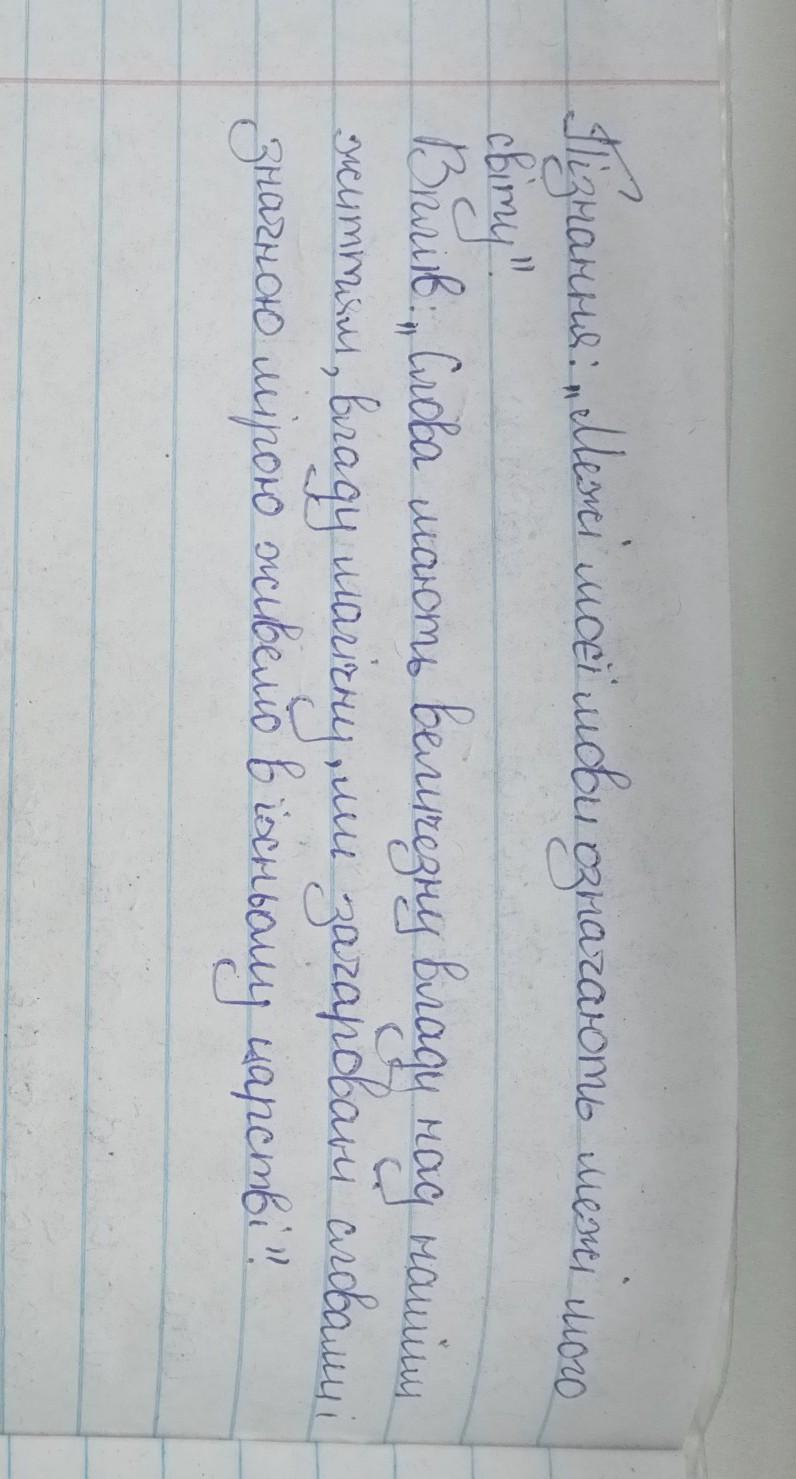 Пізнання: „Межі моєї мови означають межі мого
світу".
Вплив: „Слова мають величезну владу над нашим
життям, владу магічну, ми зачаровані словами і
значною мірою живемо в їхньому царстві".